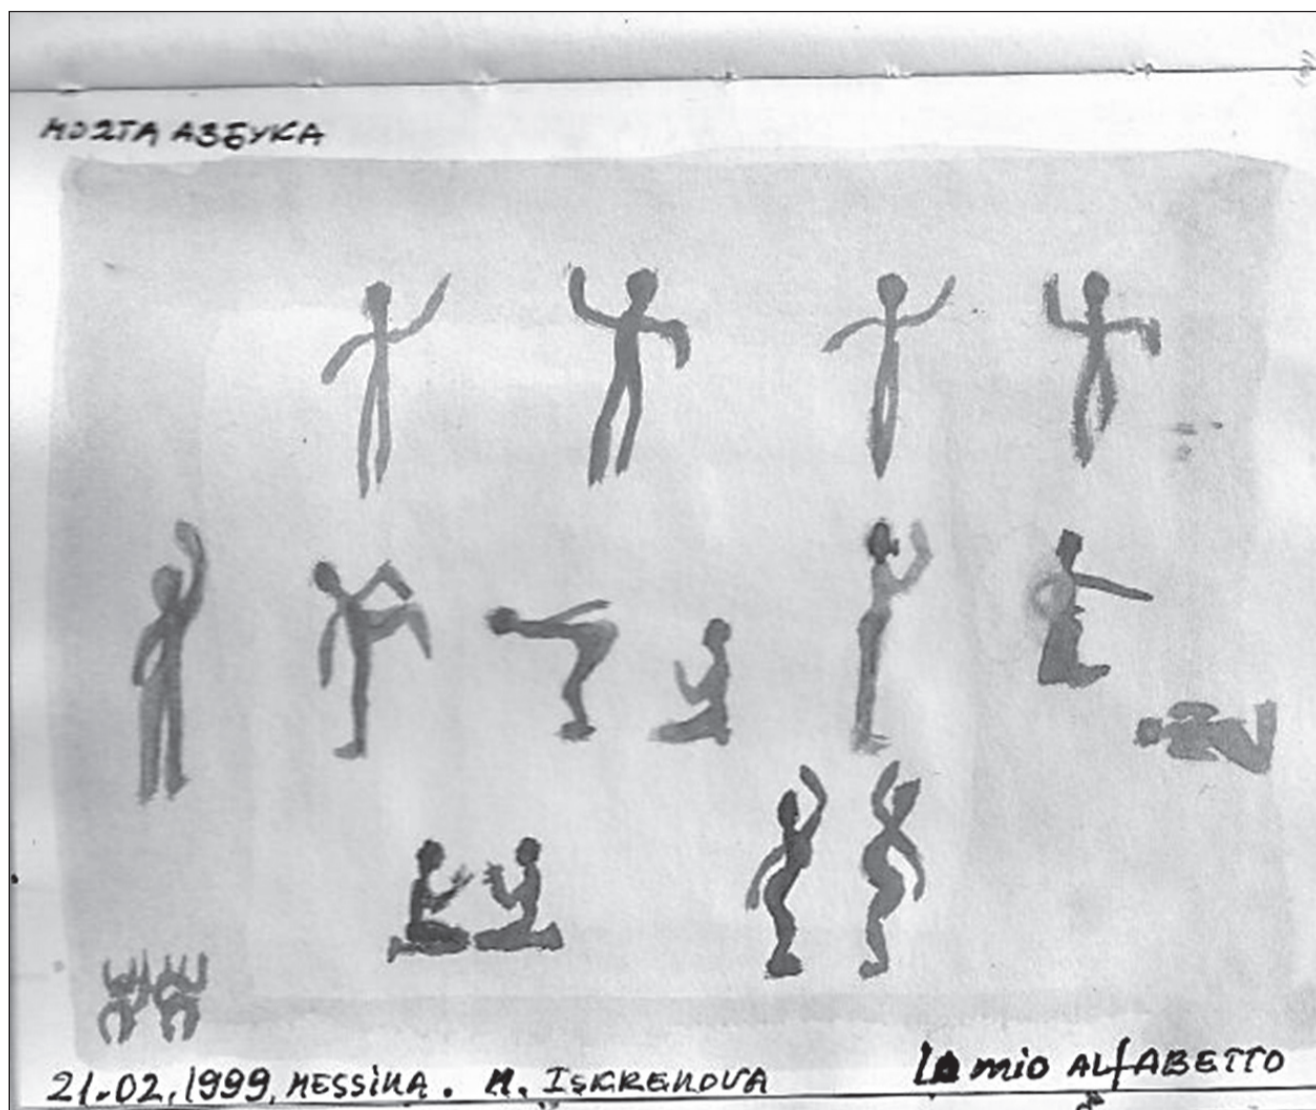 МОЯТА АЗБУКА
21.02.1999, MESSINA. M. ISKRENOVA
mio ALfABETTO